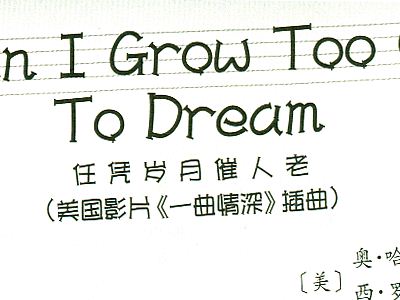 n I Grow Too
To Dream
任凭岁月催人老
（美国影片《一曲情深》插曲）
奥·哈
〔美〕
西·罗